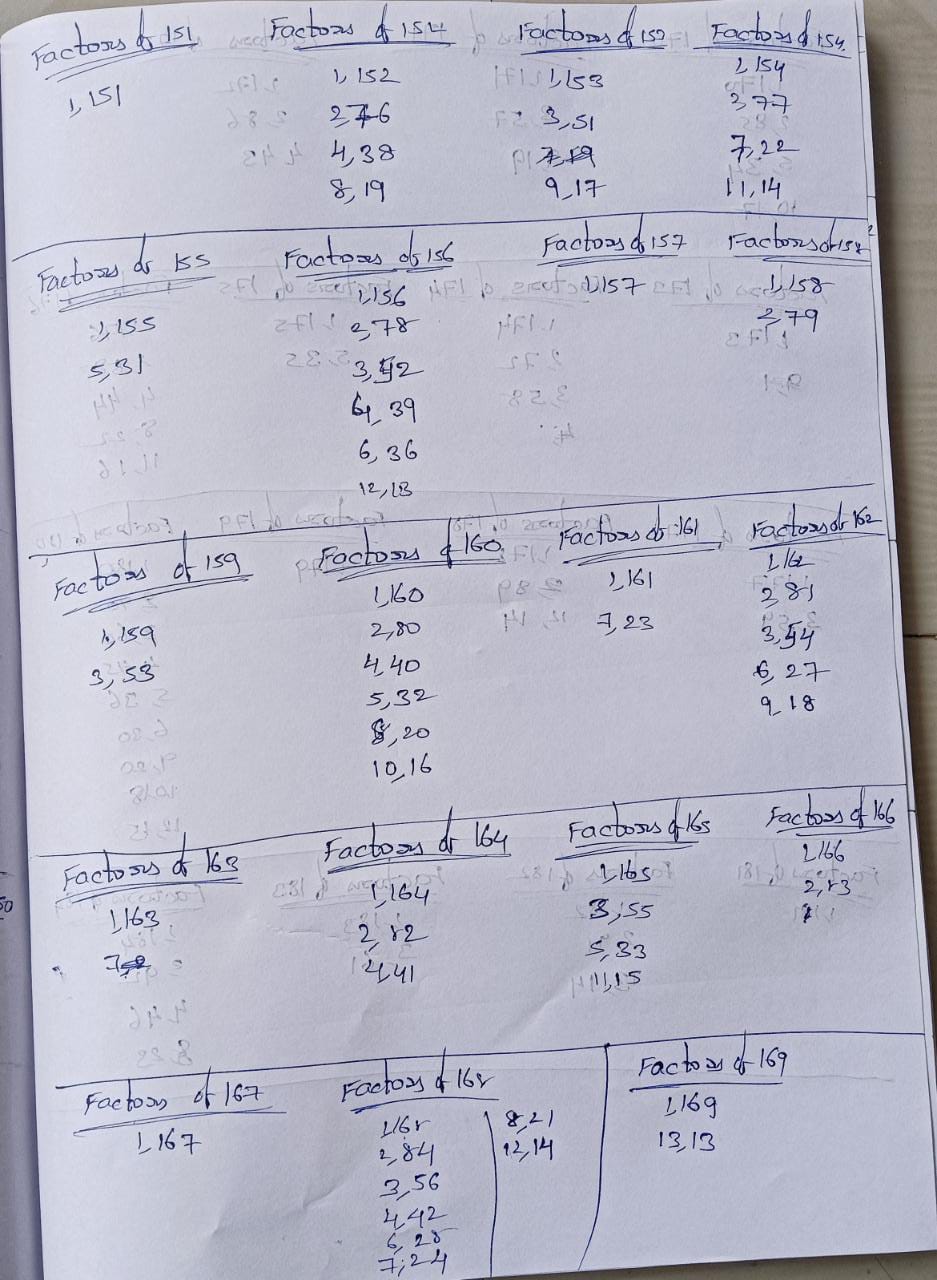 Factors of 151
1, 151
Factors of 154
1, 152
2, 76
4, 38
8, 19
Factors of 152
1, 153
3, 51
9, 17
Factors of 154.
1, 154
2, 77
7, 22
11, 14
Factors of 155
1, 155
5, 31
Factors of 156
1, 156
2, 78
3, 52
4, 39
6, 36
12, 13
Factors of 157
1, 157
Factors of 158
1, 158
2, 79
Factors of 159
1, 159
3, 53
Factors of 160
1, 160
2, 80
4, 40
5, 32
8, 20
10, 16
Factors of 161
1, 161
7, 23
Factors of 162
1, 162
2, 81
3, 54
6, 27
9, 18
Factors of 163
1, 163
Factors of 164
1, 164
2, 82
4, 41
Factors of 165
1, 165
3, 55
5, 33
11, 15
Factors of 166
1, 166
2, 83
Factors of 167
1, 167
Factors of 168
1, 168
2, 84
3, 56
4, 42
6, 28
7, 24
8, 21
12, 14
Factors of 169
1, 169
13, 13